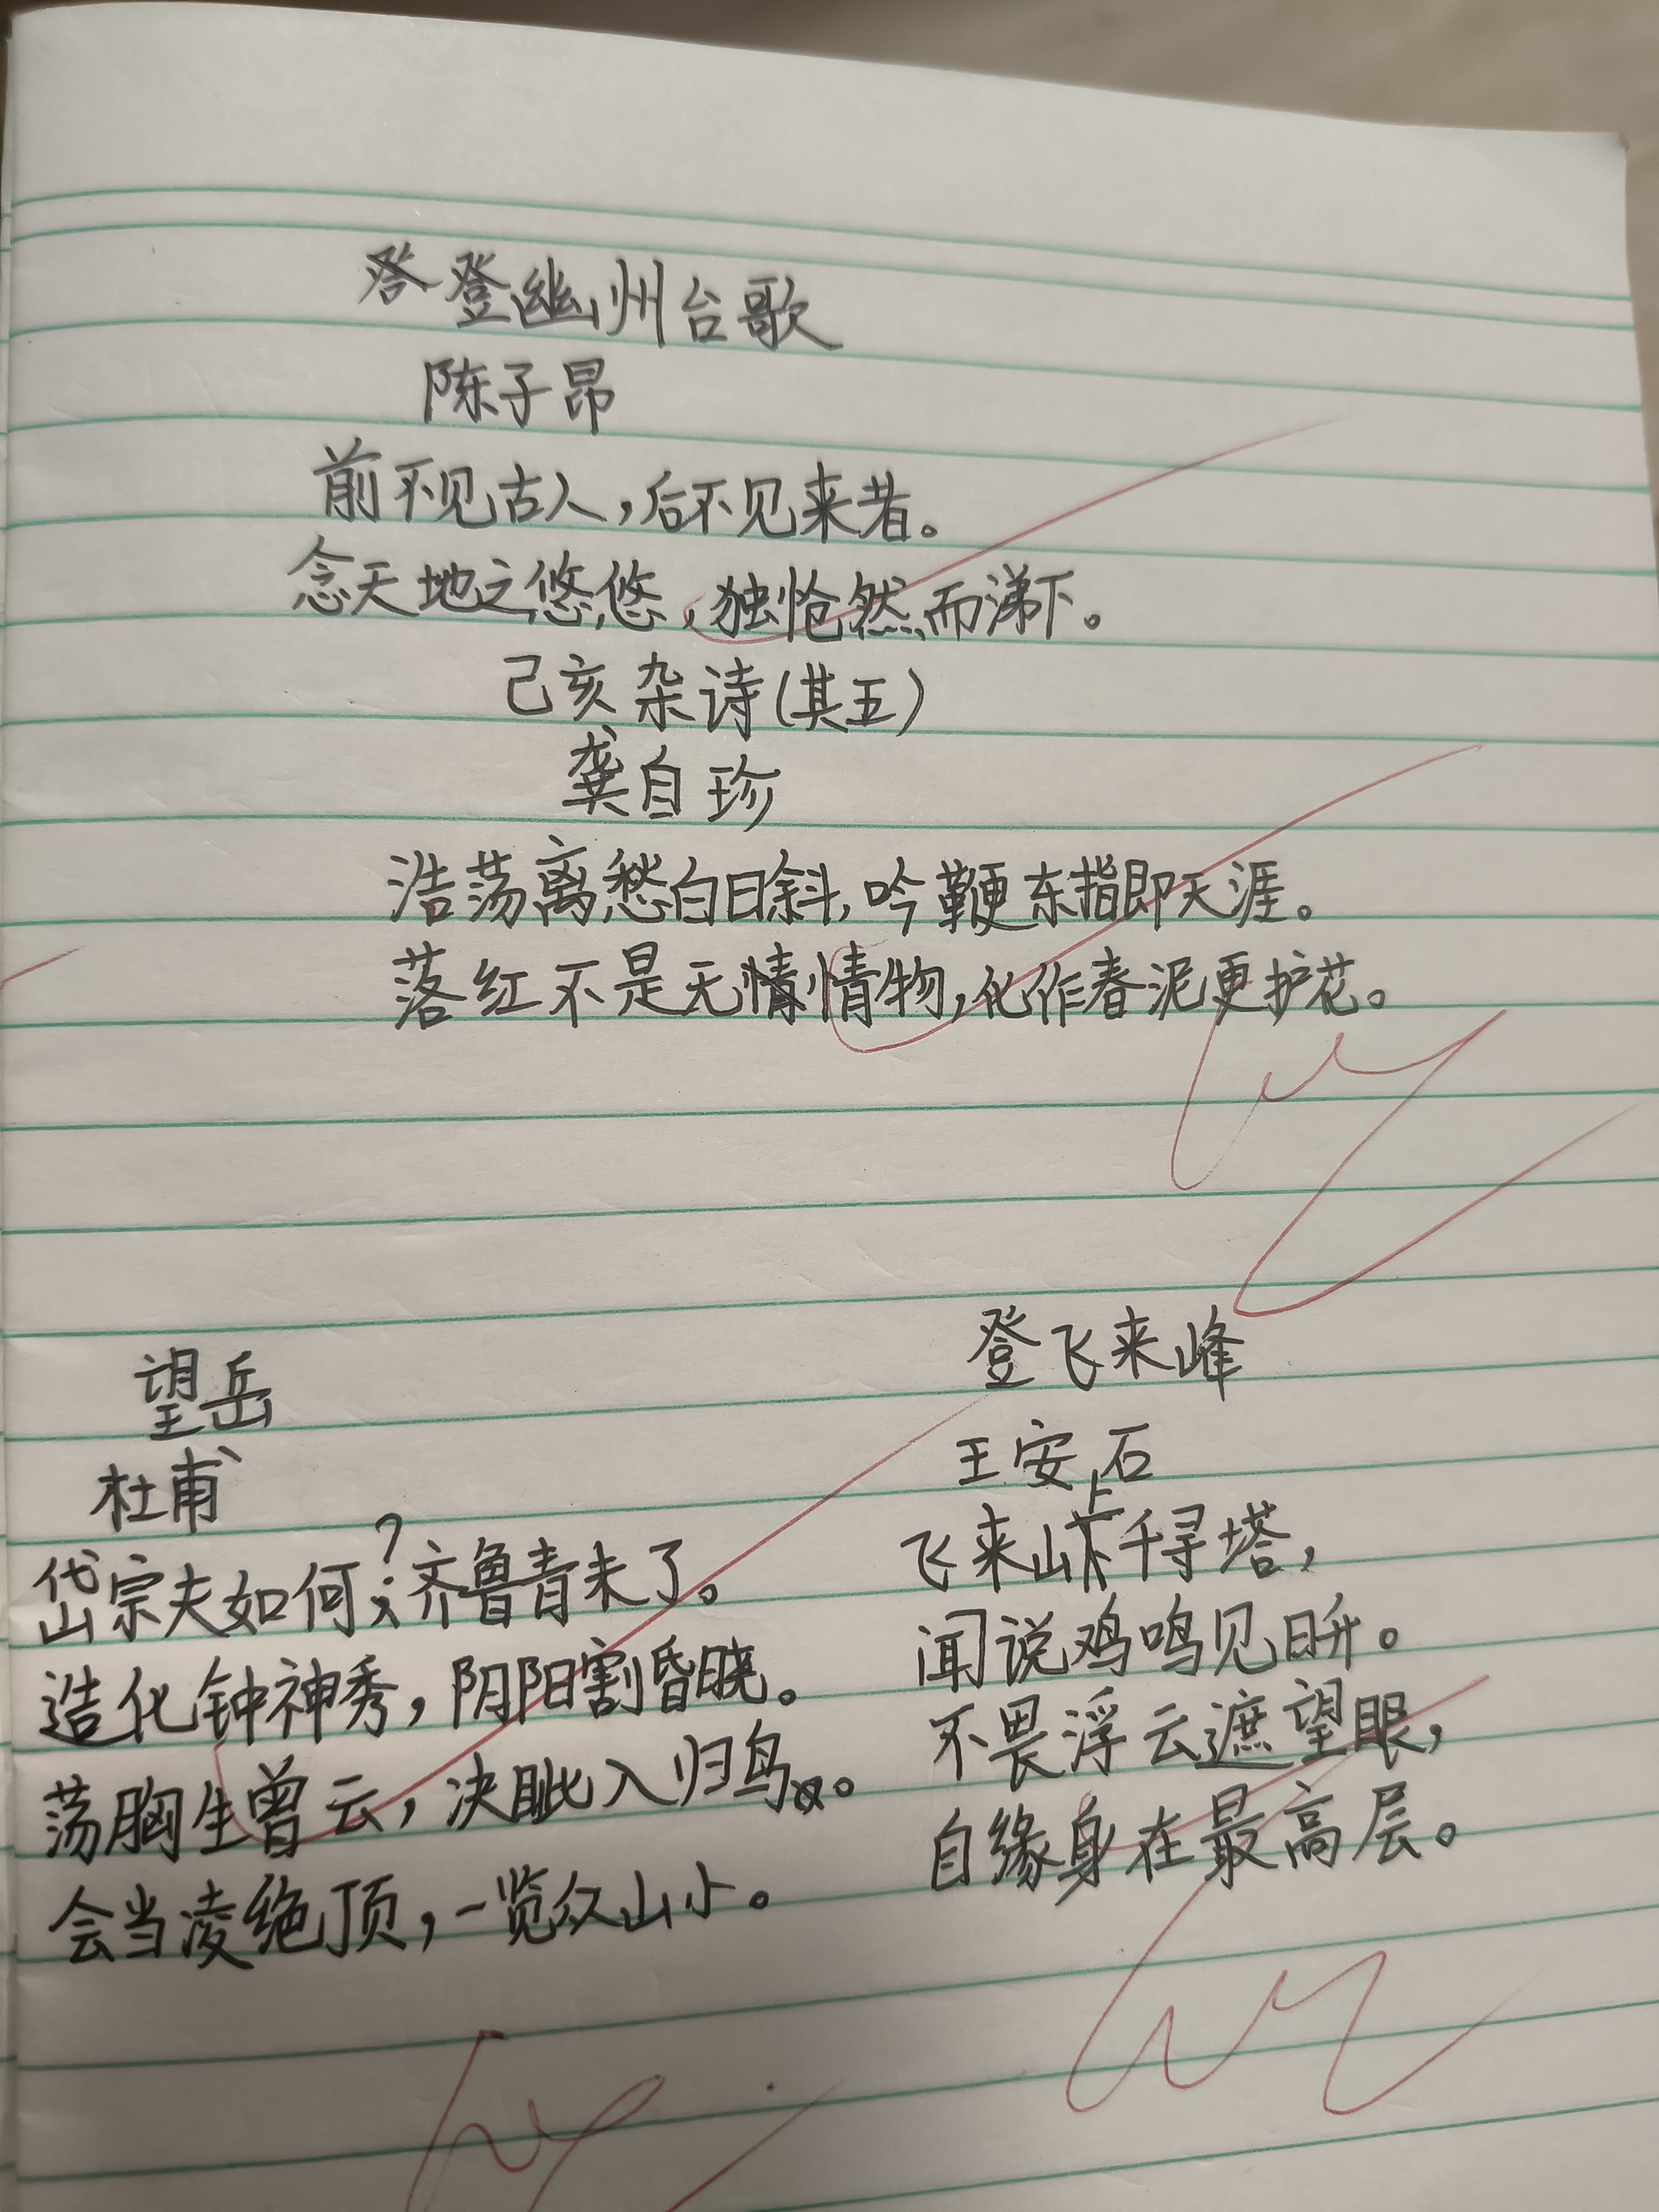 登幽州台歌
陈子昂
前不见古人，后不见来者。
念天地之悠悠，独怆然而涕下。
己亥杂诗（其五）
龚自珍
浩荡离愁白日斜，吟鞭东指即天涯。
落红不是无情物，化作春泥更护花。
望岳
杜甫
岱宗夫如何？齐鲁青未了。
造化钟神秀，阴阳割昏晓。
荡胸生曾云，决眦入归鸟。
会当凌绝顶，一览众山小。
登飞来峰
王安石
飞来山上千寻塔，
闻说鸡鸣见日升。
不畏浮云遮望眼，
自缘身在最高层。